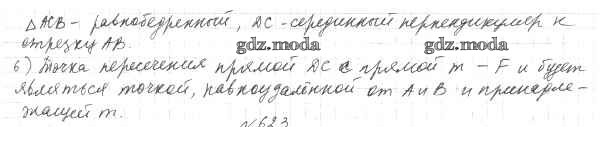 △ ACB - равнобедренный, DC - серединный перпендикуляр к
отрезку AB.
gdz.moda
gdz.moda
б) Точка пересечения прямой DC с прямой m - F и будет
являться точкой, равноудалённой от A и B и принадле-
жащей m.
№623